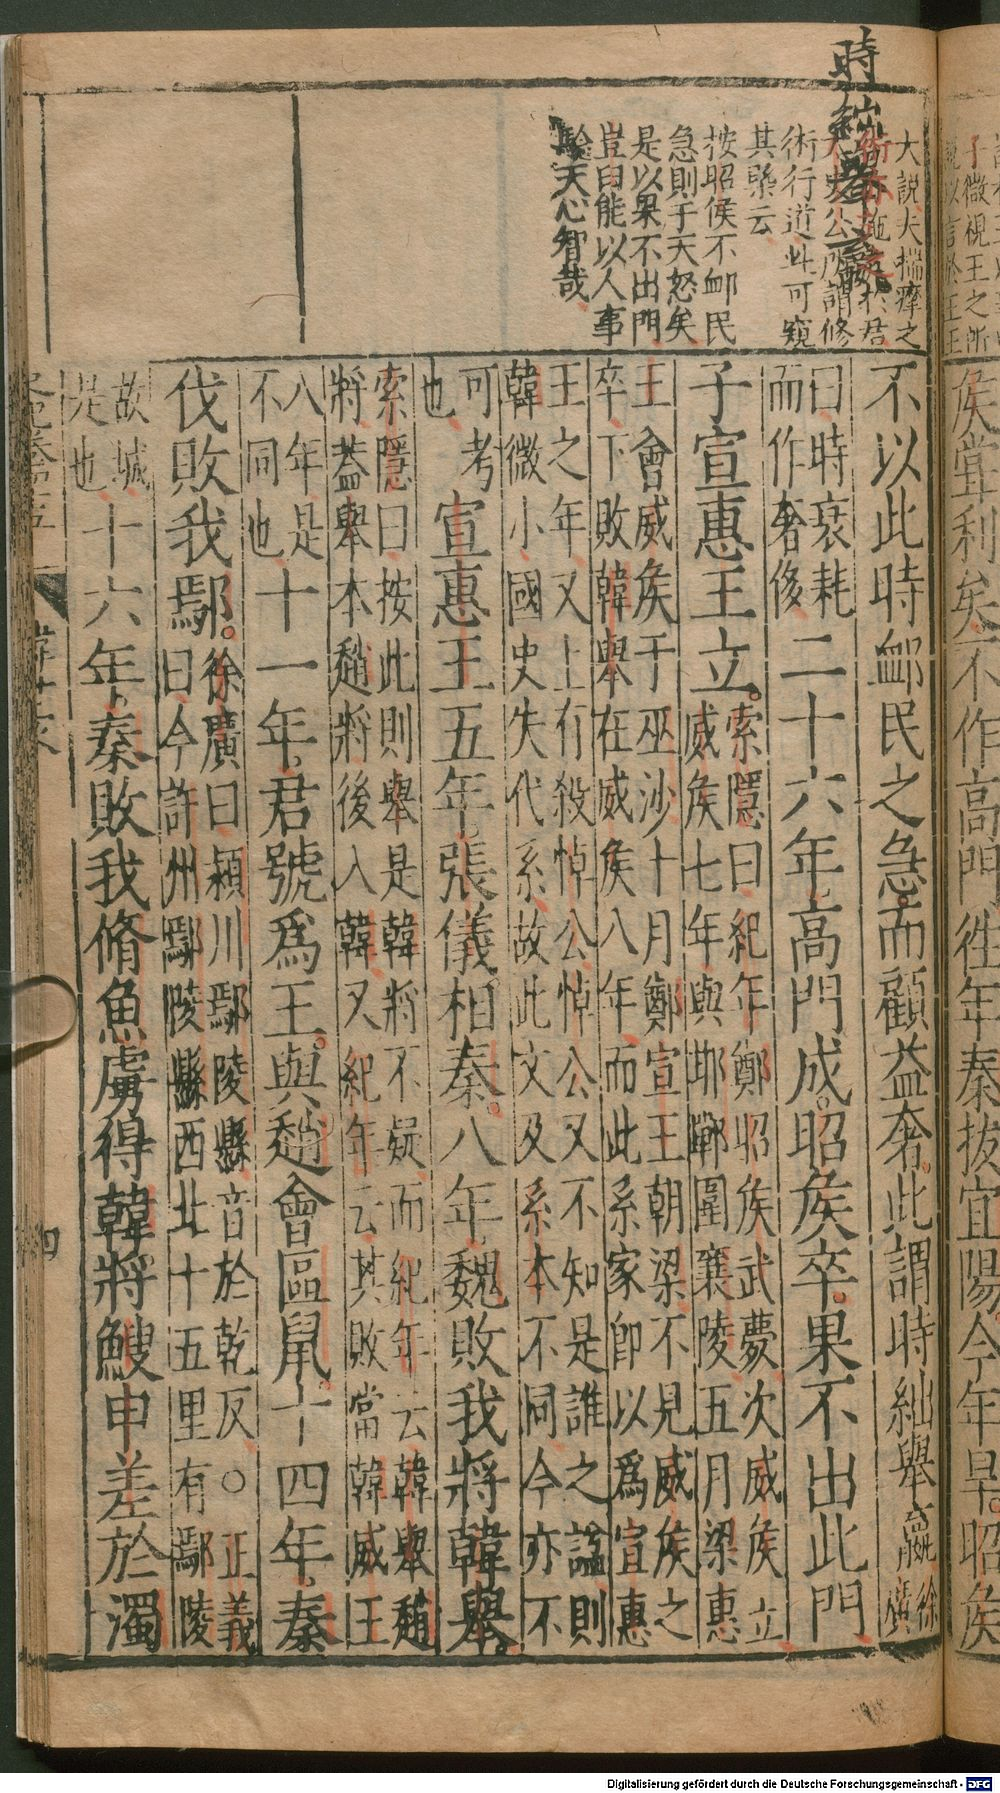 時絀舉
大說夫揣摩之
術行道此可窺
其槩云
按昭侯不䘏民
急則于天怒矣
是以果不出門
豈曰能以人事
驗天心智哉
侯嘗利矣不作高門往年秦拔宜陽今年旱昭侯
不以此時䘏民之急而顧益奢此謂時絀舉嬴徐廣
曰時衰耗
而作奢侈
二十六年高門成昭侯卒果不出此門
子宣惠王立
索隱曰紀年鄭昭侯武薨次威侯立
威侯七年與邯鄲圍襄陵五月梁惠
王會威侯于巫沙十月鄭宣王朝梁不見威侯之
卒下敗韓舉在威侯八年而此系家即以爲宣惠
王之年又上有殺悼公悼公又不知是誰之謚則
韓微小國史失代系故此文及系本不同今亦不
可考
也
宣惠王五年張儀相秦八年魏敗我將韓舉
索隱曰按此則舉是韓將不疑而紀年云韓舉趙
將蓋舉本趙將後入韓又紀年云其敗當韓威王
八年是
不同也
十一年君號爲王與趙會區鼠十四年秦
伐敗我鄢
徐廣曰潁川鄢陵縣音於乾反○正義
曰今許州鄢陵縣西北十五里有鄢陵
故城
是也
十六年秦敗我脩魚虜得韓將鰒申差於濁
四
Digitalisierung gefördert durch die Deutsche Forschungsgemeinschaft - DFG